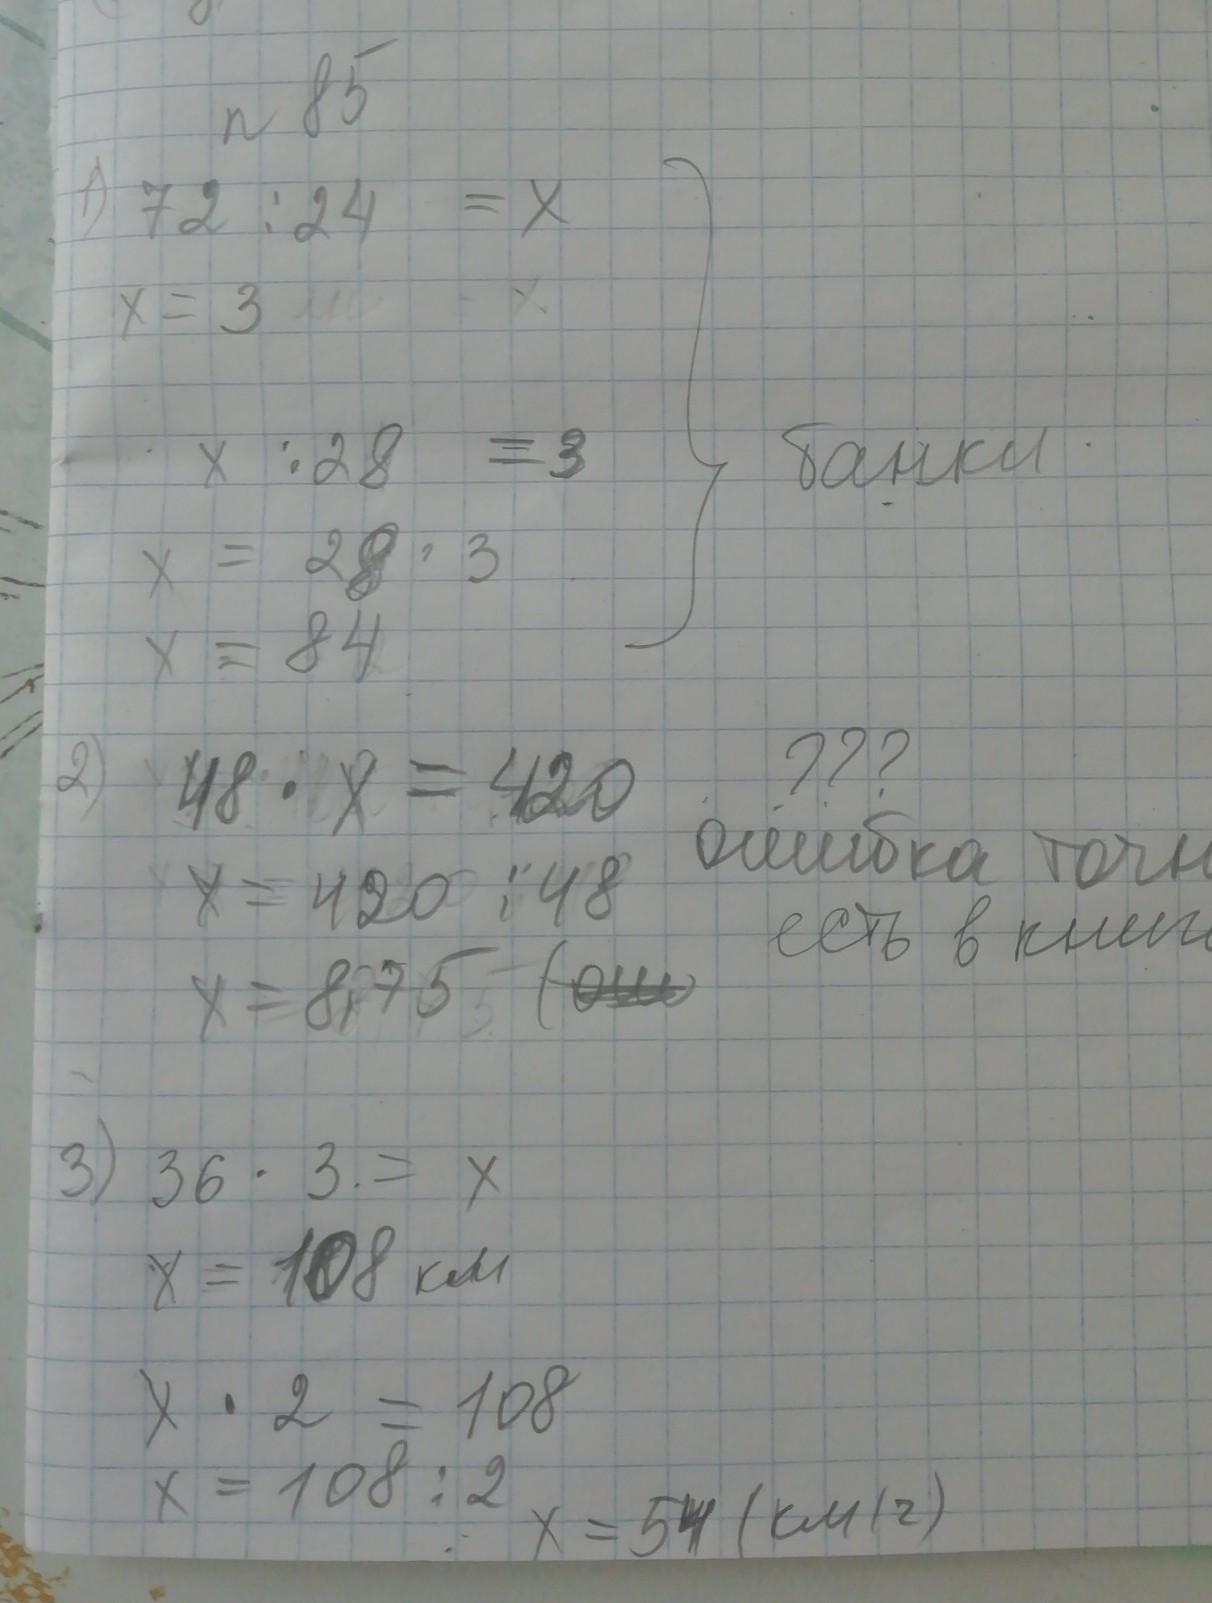 n 85
1) 72 : 24 = x
x = 3
x : 28 = 3
x = 28 · 3
x = 84
банки
2) 48 · x = 420 ???
x = 420 : 48 ошибка точн
x = 8,75 ( есть в книг
3) 36 · 3 = x
x = 108 км
x · 2 = 108
x = 108 : 2
x = 54 (км/ч)